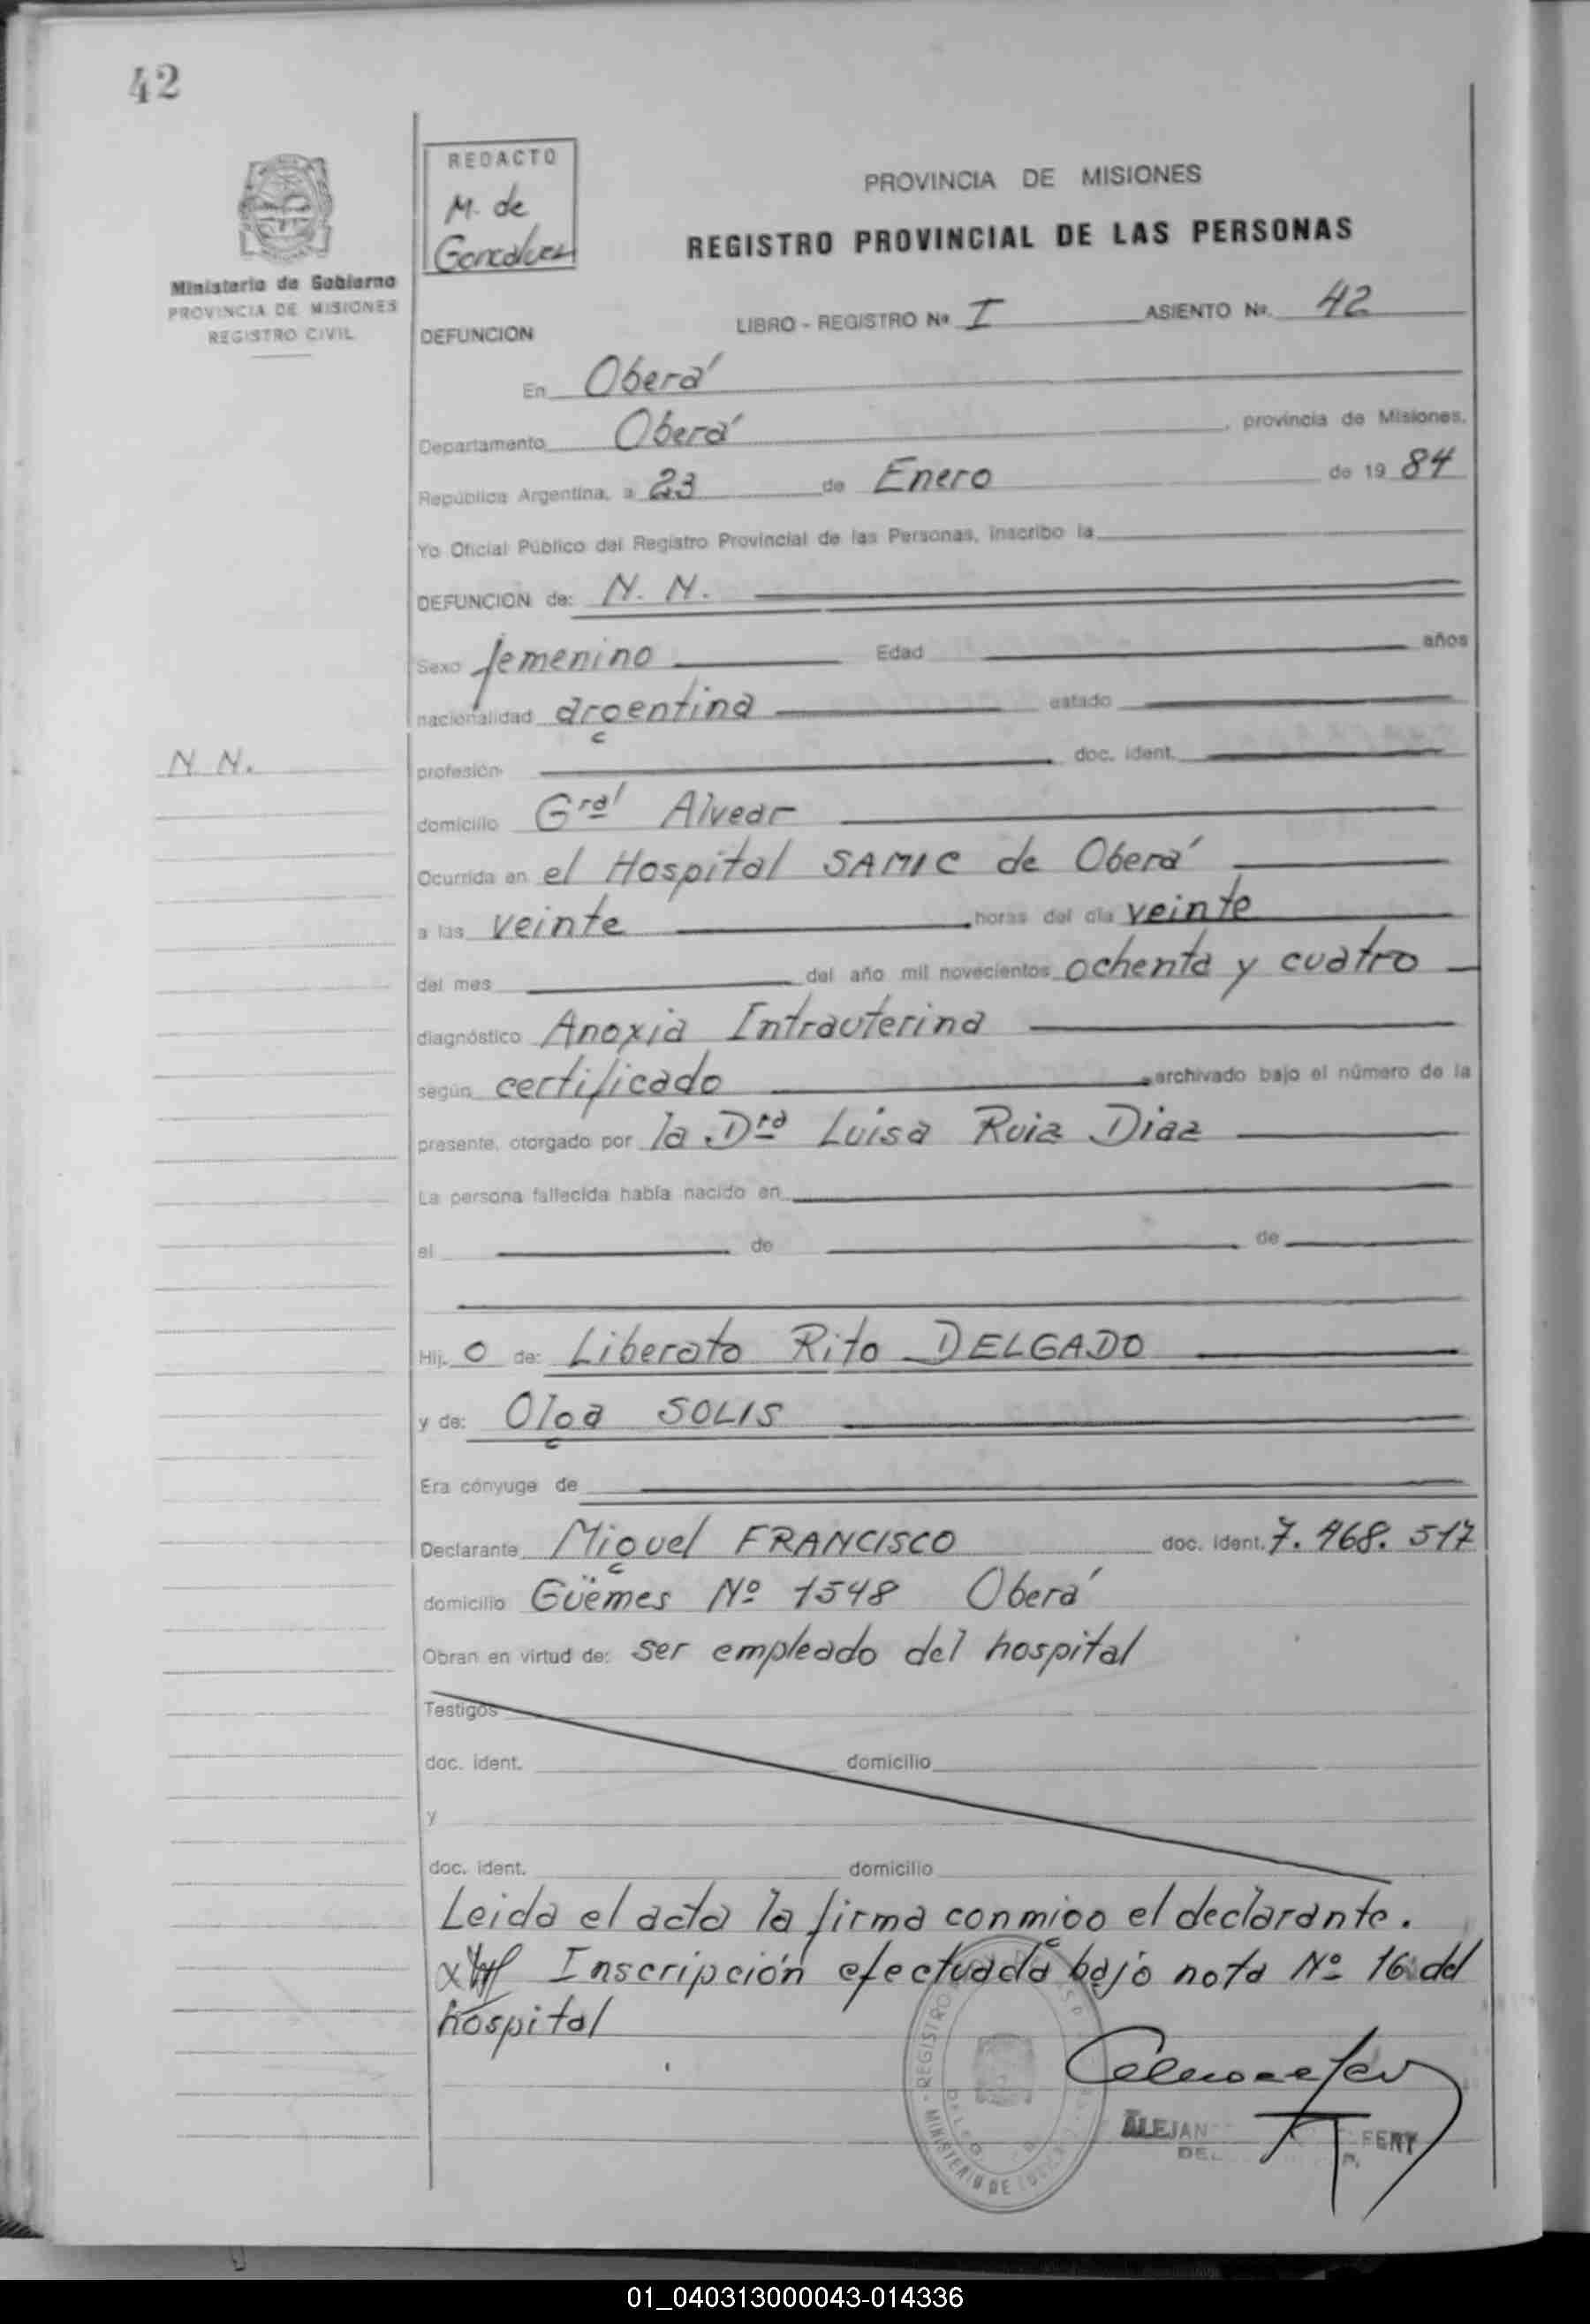 42
REDACTO
M. de
Goncalvez
Ministerio de Gobierno
PROVINCIA DE MISIONES
REGISTRO CIVIL
PROVINCIA DE MISIONES
REGISTRO PROVINCIAL DE LAS PERSONAS
DEFUNCION LIBRO - REGISTRO Nº I ASIENTO Nº. 42
En Oberá
Departamento Oberá, provincia de Misiones,
República Argentina, a 23 de Enero de 1984
Yo Oficial Público del Registro Provincial de las Personas, inscribo la
DEFUNCION de: N. N.
Sexo femenino Edad años
nacionalidad argentina estado
N. N.
profesión doc. ident.
domicilio Gral Alvear
Ocurrida en el Hospital SAMIC de Oberá
a las veinte horas del día veinte
del mes del año mil novecientos ochenta y cuatro
diagnóstico Anoxia Intrauterina
según certificado archivado bajo el número de la
presente, otorgado por la Dra Luisa Ruiz Diaz
La persona fallecida había nacido en
el de de
Hij o de: Liberato Rito DELGADO
y de: Olga SOLIS
Era cónyuge de
Declarante Miguel FRANCISCO doc. ident. 7.468.517
domicilio Güemes Nº 1548 Oberá
Obran en virtud de: ser empleado del hospital
Testigos
doc. ident. domicilio
y
doc. ident. domicilio
Leida el acta la firma conmigo el declarante.
Inscripción efectuada bajo nota Nº 16 del
hospital
REGISTRO
MINISTERIO DE
ALEJAN FERT
DEL
01_040313000043-014336